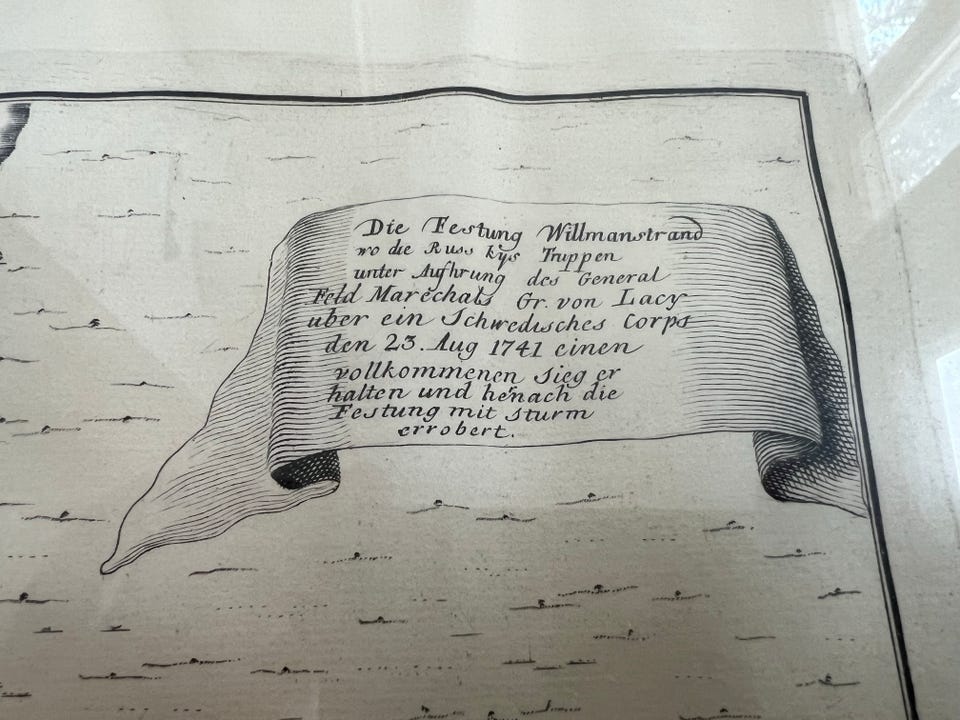 Die Festung Willmanstrand
wo die Russ kijs Truppen
unter Aufhrung des General
Feld Marechals Gr. von Lacy
uber ein Schwedisches Corps
den 23. Aug 1741 einen
vollkommenen Sieg er
halten und henach die
Festung mit Sturm
errobert.